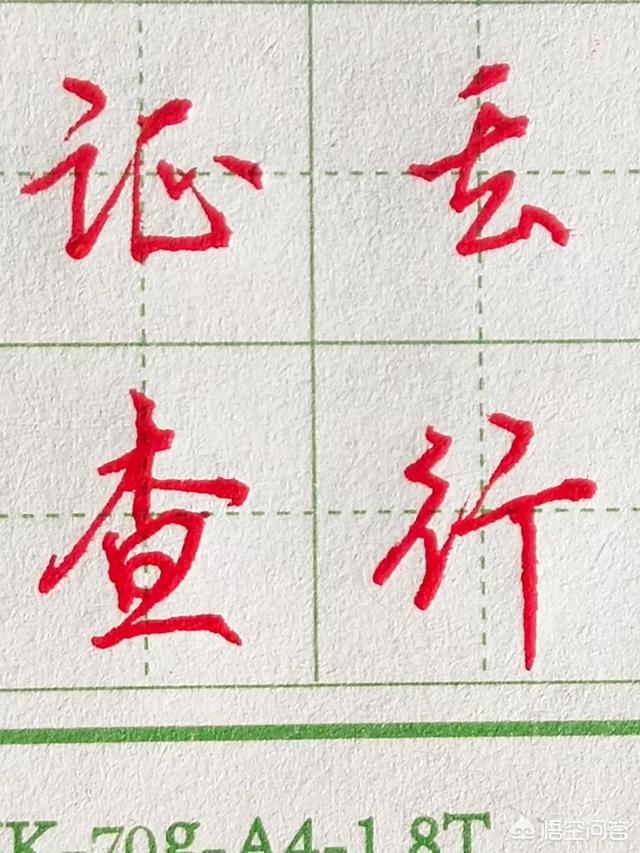 证丢
查行
K-70g-A4-1.8T
悟空问答